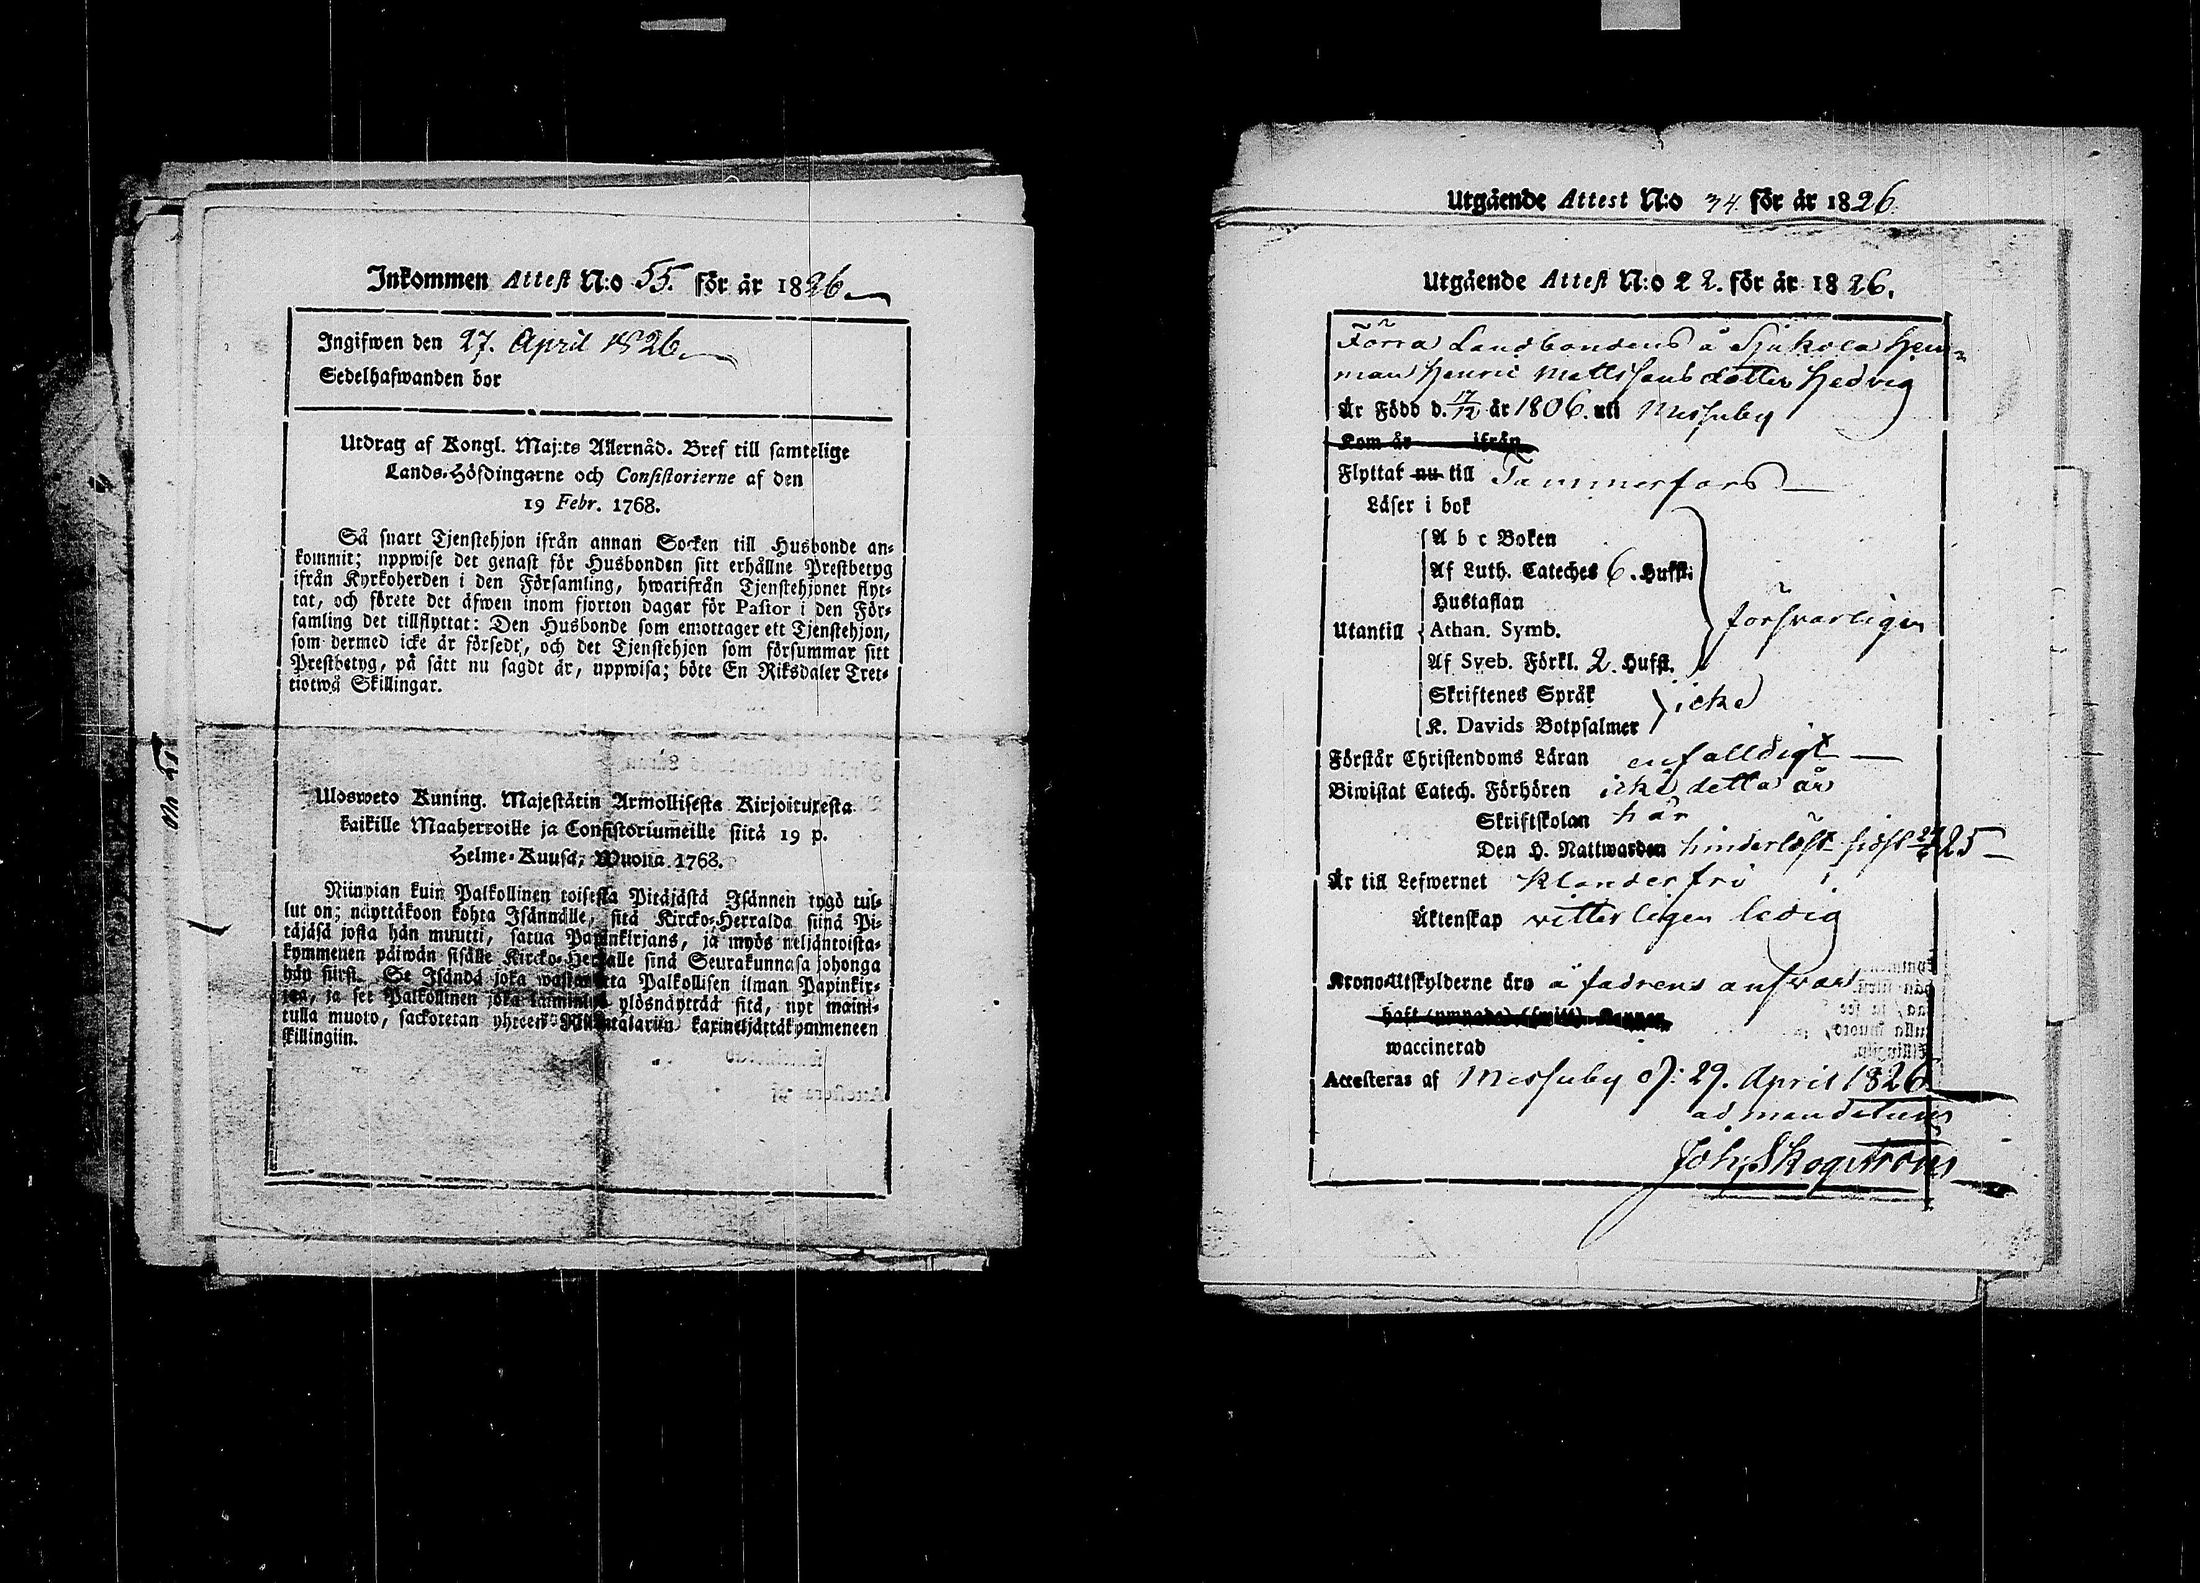 Inkommen Attest N:o 55. för år 1826
Ingifwen den 27. April 1826
Sedelhafwanden bor
Utdrag af Kongl. Maj:ts Allernåd. Bref till samtelige
Lands-Höfdingarne och Consistorierne af den
19 Febr. 1768.
Så snart Tjenstehjon ifrån annan Socken till Husbonde an-
kommit; uppwise det genast för Husbonden sitt erhållne Prestbetyg
ifrån Kyrkoherden i den Församling, hwarifrån Tjenstehjonet flyt-
tat, och förete det äfwen inom fjorton dagar för Pastor i den För-
samling det tillflyttat: Den Husbonde som emottager ett Tjenstehjon,
som dermed icke är försedt, och det Tjenstehjon som försummar sitt
Prestbetyg, på sätt nu sagdt är, uppwisa; böte En Riksdaler Tret-
tiotwå Skillingar.
Ulosweto Kuning. Majestätin Armollisesta Kirjoituxesta
kaikille Maaherroille ja Consistoriumeille siitä 19 p.
Helme-Kuusa, Wuona 1768.
Niinpian kuin Palkollinen toisesta Pitäjästä Isännen tygö tul-
lut on; näyttäkoon kohta Isännälle, sitä Kircko-Herralda siinä Pi-
täjäsä josta hän muutti, saatua Papinkirjans, ja myös neljäntoista-
kymmenen päiwän sisälle Kircko-Herralle siinä Seurakunnasa johonga
hän siirsi. Se Isändä joka wastanotta Palkollisen ilman Papinkir-
jaa, ja se Palkollinen joka laiminlyö ylösnäyttää sitä, nyt maini-
tulla muoto, sackotetan yhteen Riikintalariin kaxineljättäkymmeneen
skillingiin.
Utgående Attest N:o 34 för år 1826.
Utgående Attest N:o 22. för år 1826.
Förra Landbondens å Sjukola Hem-
man Henric Mattssons dotter Hedvig
Är Född d. 17/12 år 1806. uti Messuby
Kom år ifrån
Flyttat nu till Tammerfors
Läser i bok
A b c Boken
Af Luth. Cateches 6. Hufst.
Hustaflan
Utantill Athan. Symb. försvarligen
Af Sveb. Förkl. 2. Hufst.
Skriftenes Språk icke
K. Davids Botpsalmer
Förstår Christendoms Läran enfalldigt
Biwistat Catech. Förhören icke detta år
Skriftskolan här
Den H. Nattwarden hinderlöst sidst 25
Är till Lefwernet klanderfri
Äktenskap vitterligen ledig
Krono-Utskylderne äro å fadrens answar
haft
waccinerad
Attesteras af Messuby d: 29. April 1826
ad mandatum
Joh. Skogström